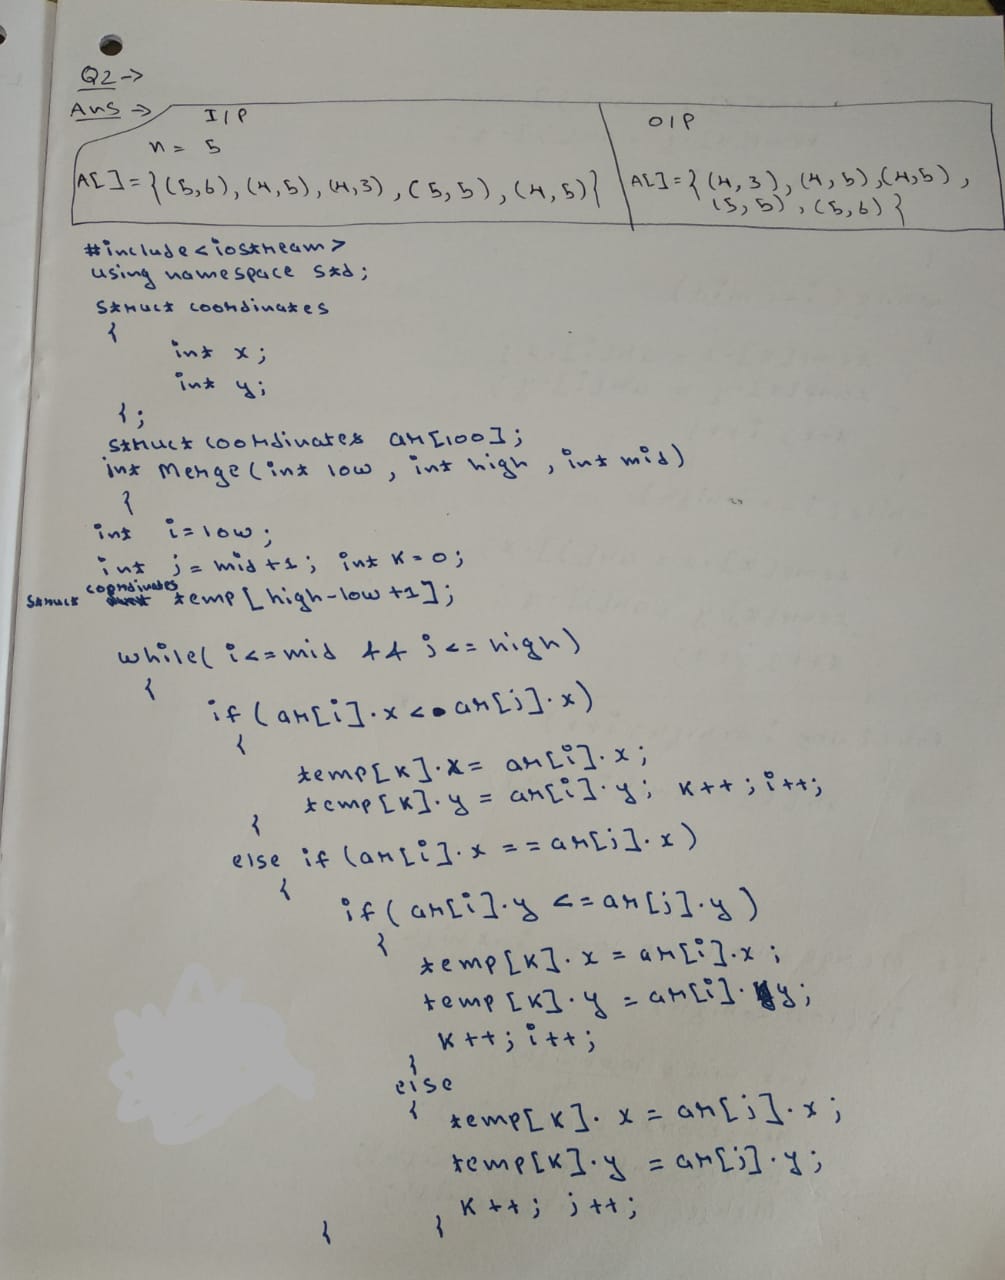 Q2->
Ans ->
I/P
n = 5
A[]={(5,6),(4,5),(4,3),(5,5),(4,5)}
O/P
A[]={(4,3),(4,5),(4,5),
(5,5),(5,6)}
#include<iostream>
using namespace std;
struct coordinates
{
int x;
int y;
};
struct coordinates ar[100];
int Merge(int low, int high, int mid)
{
int i=low;
int j=mid+1; int k=0;
struct coordinates temp[high-low+1];
while(i<=mid && j<=high)
{
if(ar[i].x < ar[j].x)
{
temp[k].x = ar[i].x;
temp[k].y = ar[i].y; k++; i++;
}
else if (ar[i].x == ar[j].x)
{
if(ar[i].y <= ar[j].y)
{
temp[k].x = ar[i].x;
temp[k].y = ar[i].y;
k++; i++;
}
else
{
temp[k].x = ar[j].x;
temp[k].y = ar[j].y;
k++; j++;
} }